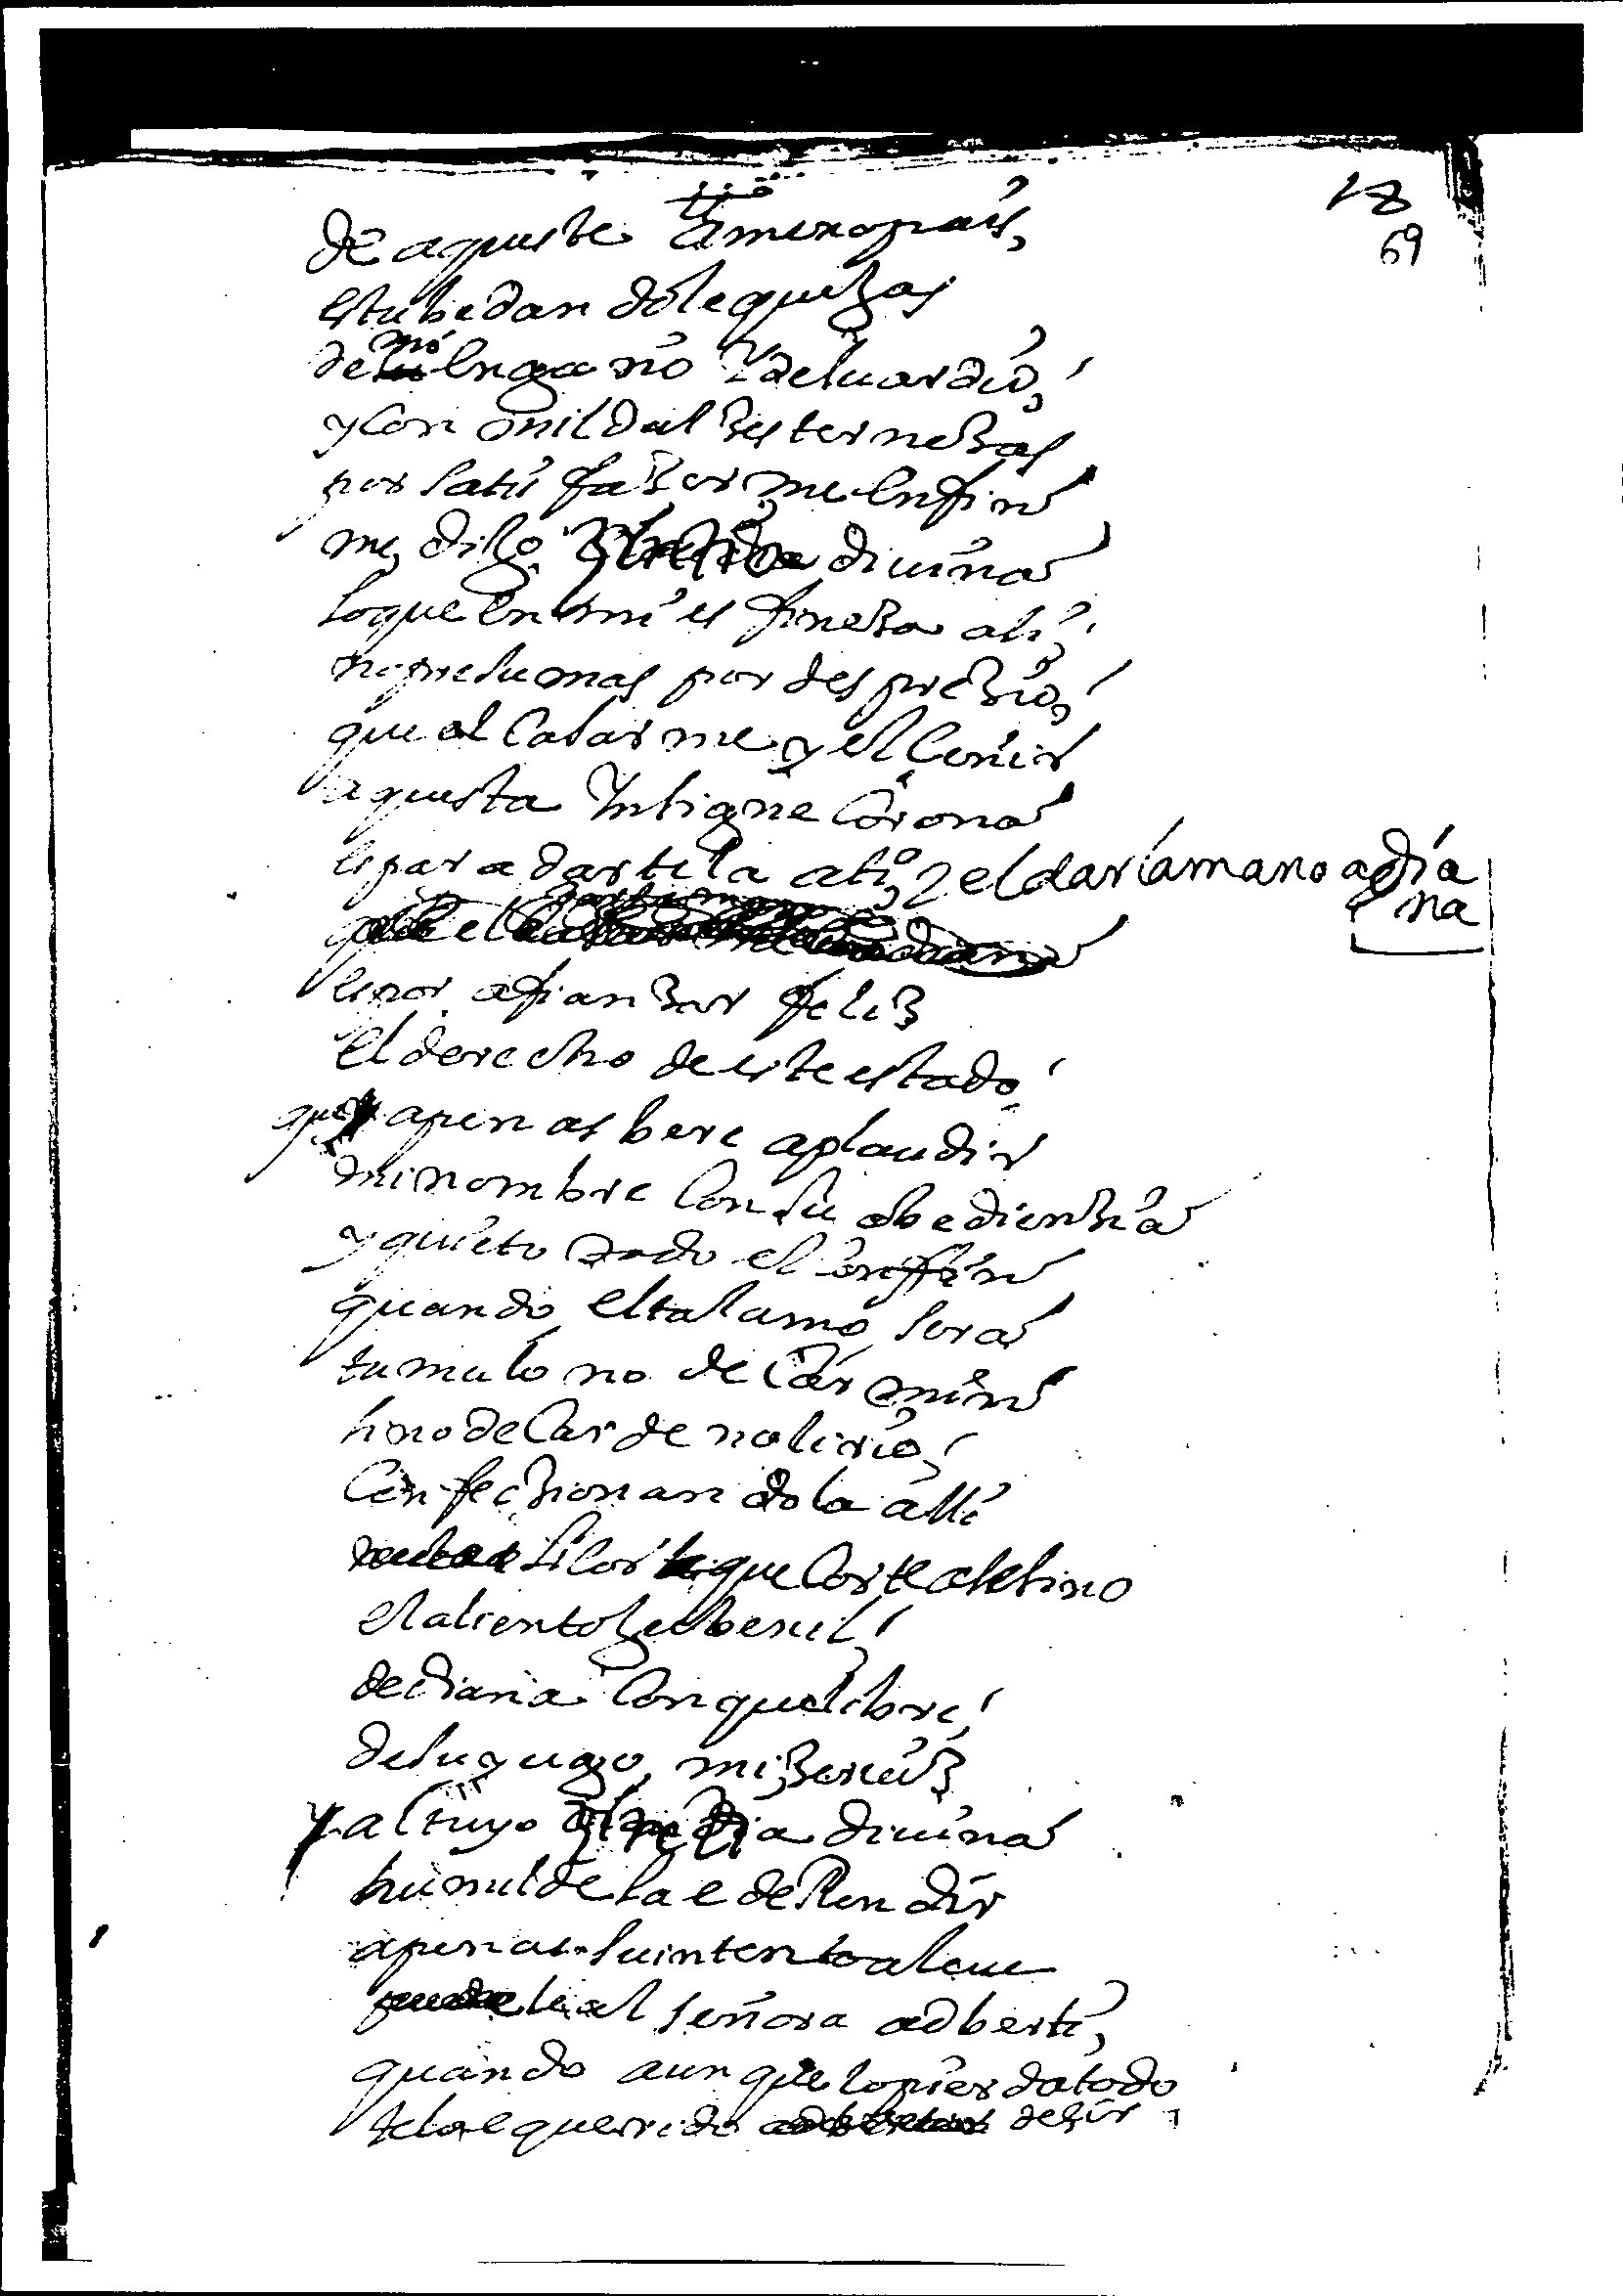 18
69
de aqueste ameno pais,
estube dandole quexas
de mi engaño y de su ardid,
y con mil dulzes ternezas
por satisfazerme en fin
me dijo, divina
lo que en mi es fineza ati,
no presumas por desprezio,
que al casarme y el ceñir
aquesta ynsigne corona
es para dartela ati, y el dar la mano a dia
na
que el
es por afianzar feliz
el derecho de este estado
que apenas vere aplaudir
mi nombre con su obedienzia
y quieto todo el confin
quando el talamo sera
tumulo no de carmin
sino de cardeno lirio,
confeczionandola alli
licor que corte al
el aliento jubenil,
de diana con que libre,
de su yugo, mi zerviz
y al tuyo divina
humilde sa e de Rendir
apenas su intento aleve
pude leal señora adberti,
quando aunque lo pierda todo
te lo e querido dezir